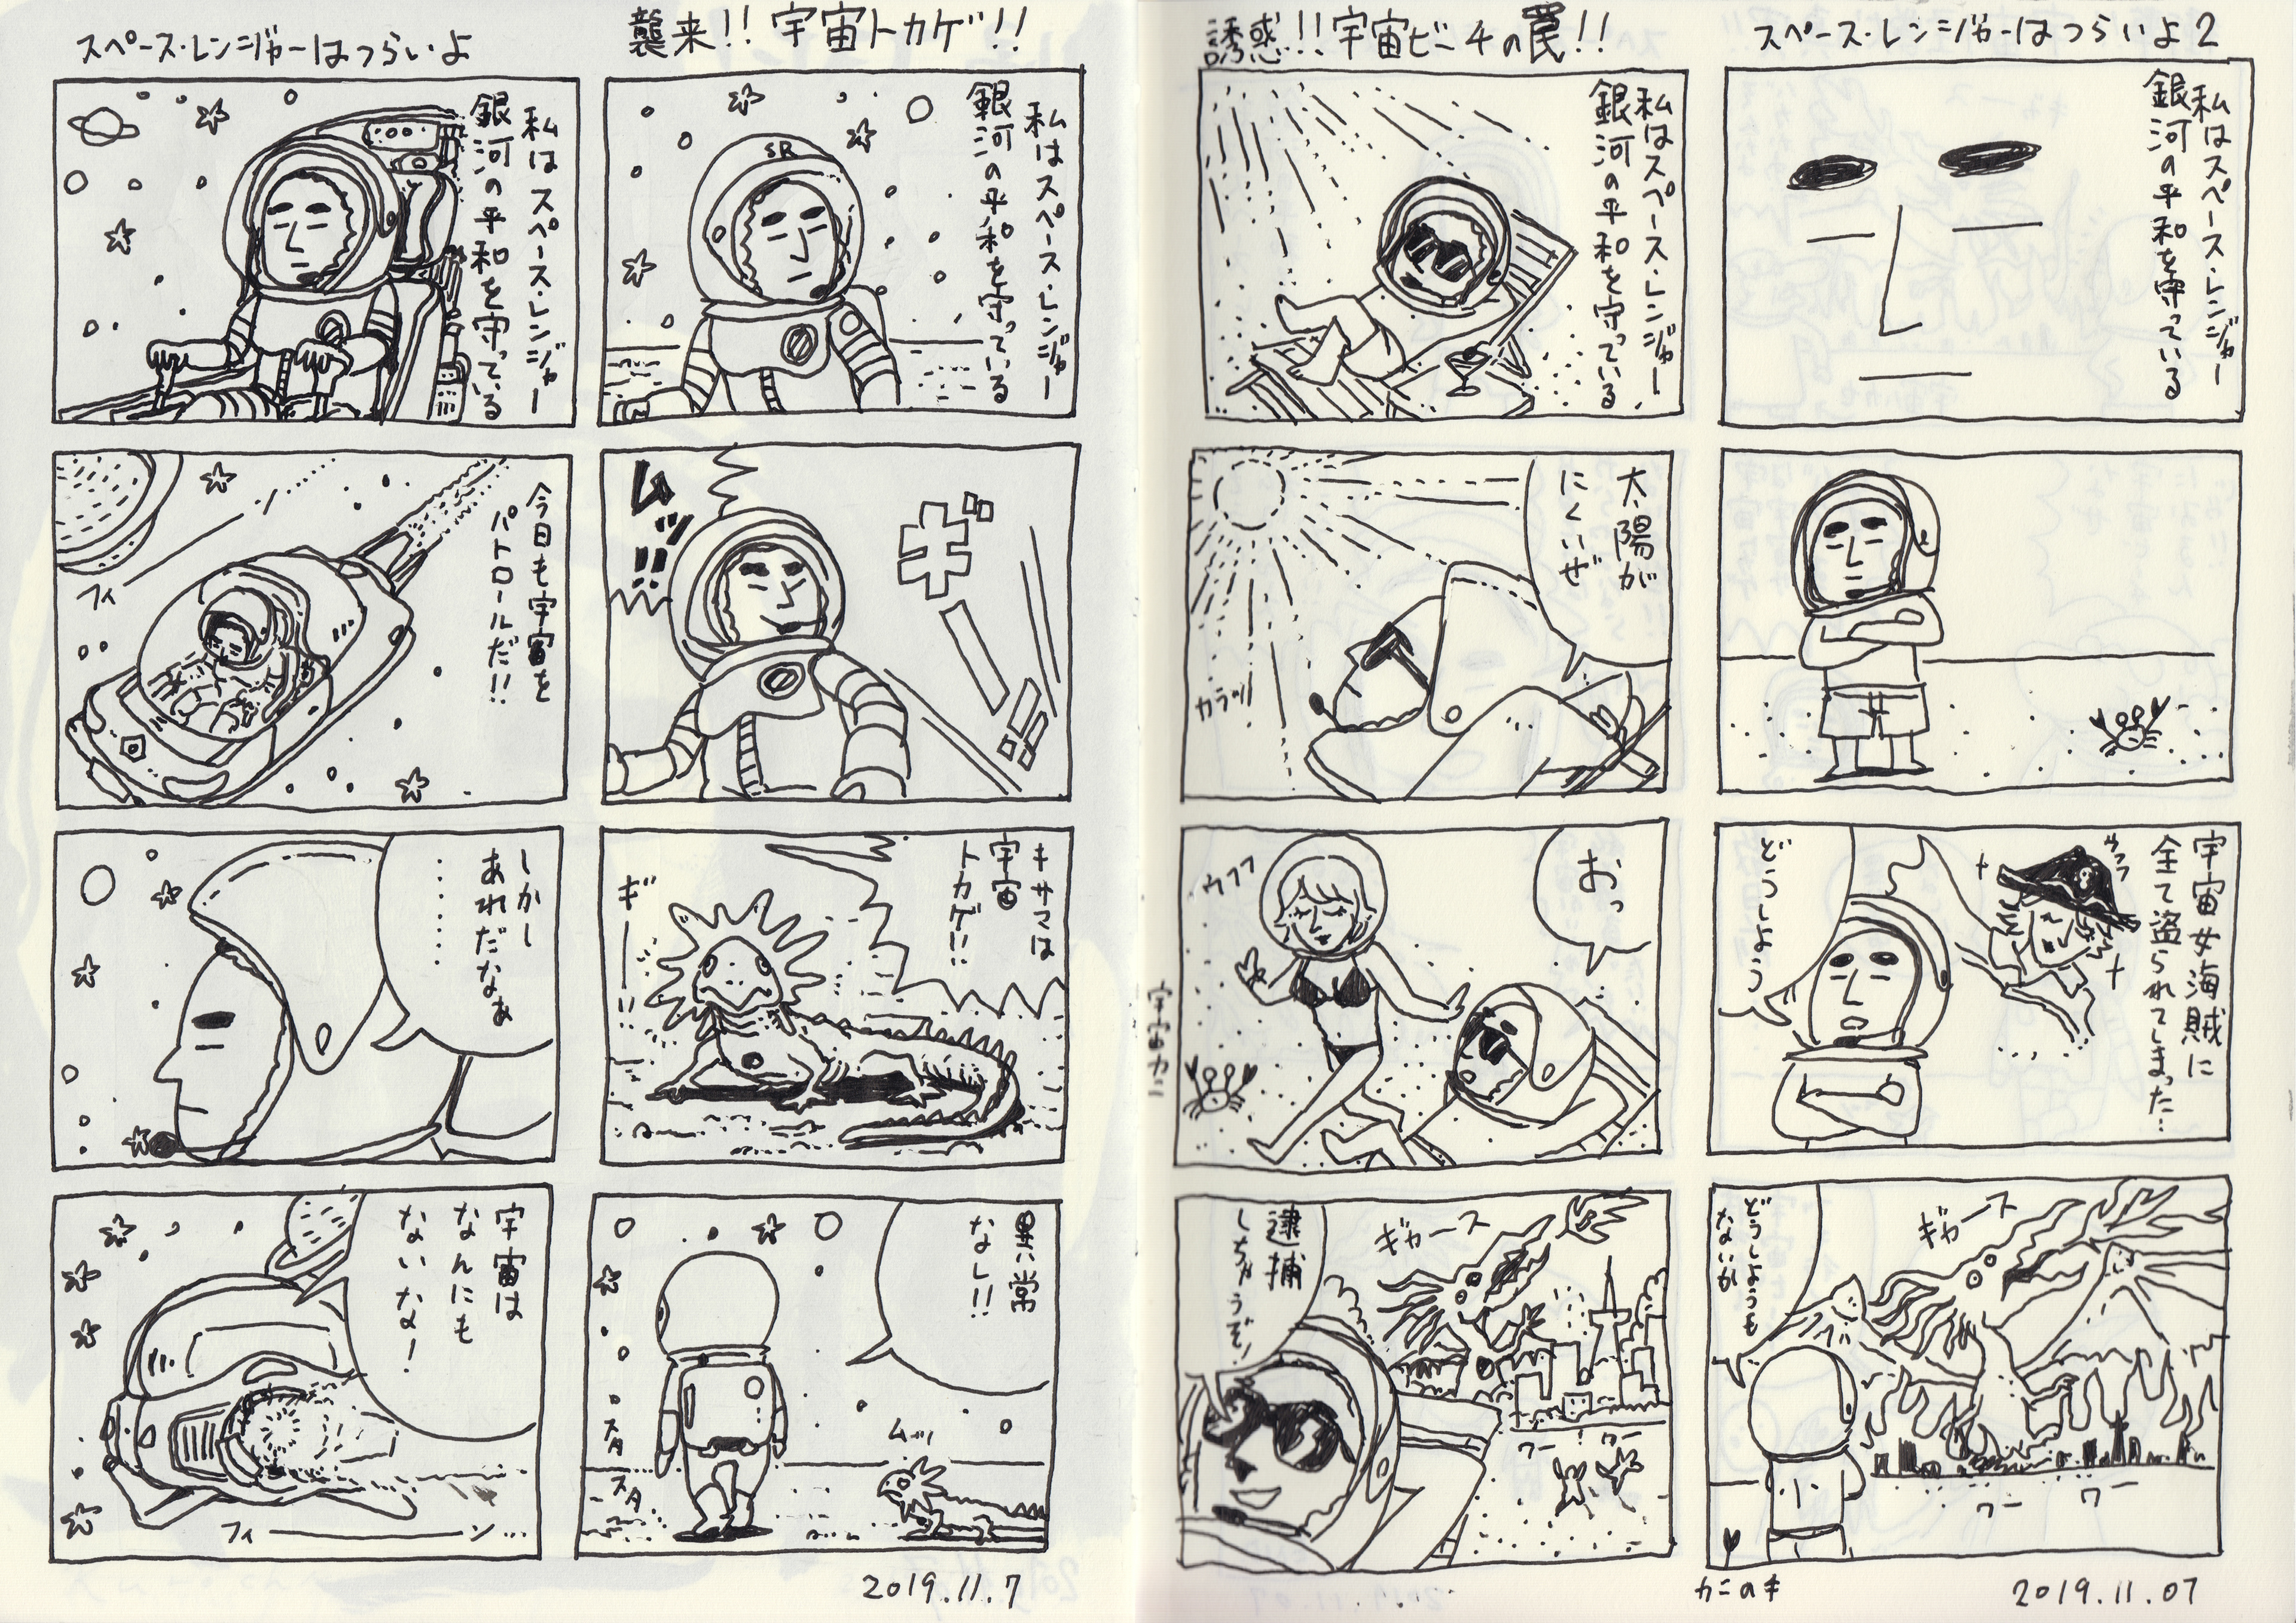 スペース・レンジャーはつらいよ
私はスペース・レンジャー
銀河の平和を守っている
今日も宇宙を
パトロールだ!!
フィ
しかし
あれだなぁ
……
宇宙は
なんにも
ないな!
フィーーン…
襲来!! 宇宙トカゲ!!
私はスペース・レンジャー
銀河の平和を守っている
SR
ムッ!!
ギー!!
キサマは
宇宙
トカゲ!!
ギーー!!
異常
なし!!
スタ
スタ
ムッ
2019.11.7
誘惑!!宇宙ビーチの罠!!
私はスペース・レンジャー
銀河の平和を守っている
太陽が
にくいぜ
カラッ!
おっ
ウフフ
宇宙カニ
逮捕
しちゃうぞ!
ギャース
ワー
ワー
スペース・レンジャーはつらいよ2
私はスペース・レンジャー
銀河の平和を守っている
宇宙女海賊に
全て盗られてしまった…
ウフフ
どうしよう
どうしようも
ないか
ギャース
ワー
ワー
カニのキ
2019.11.07